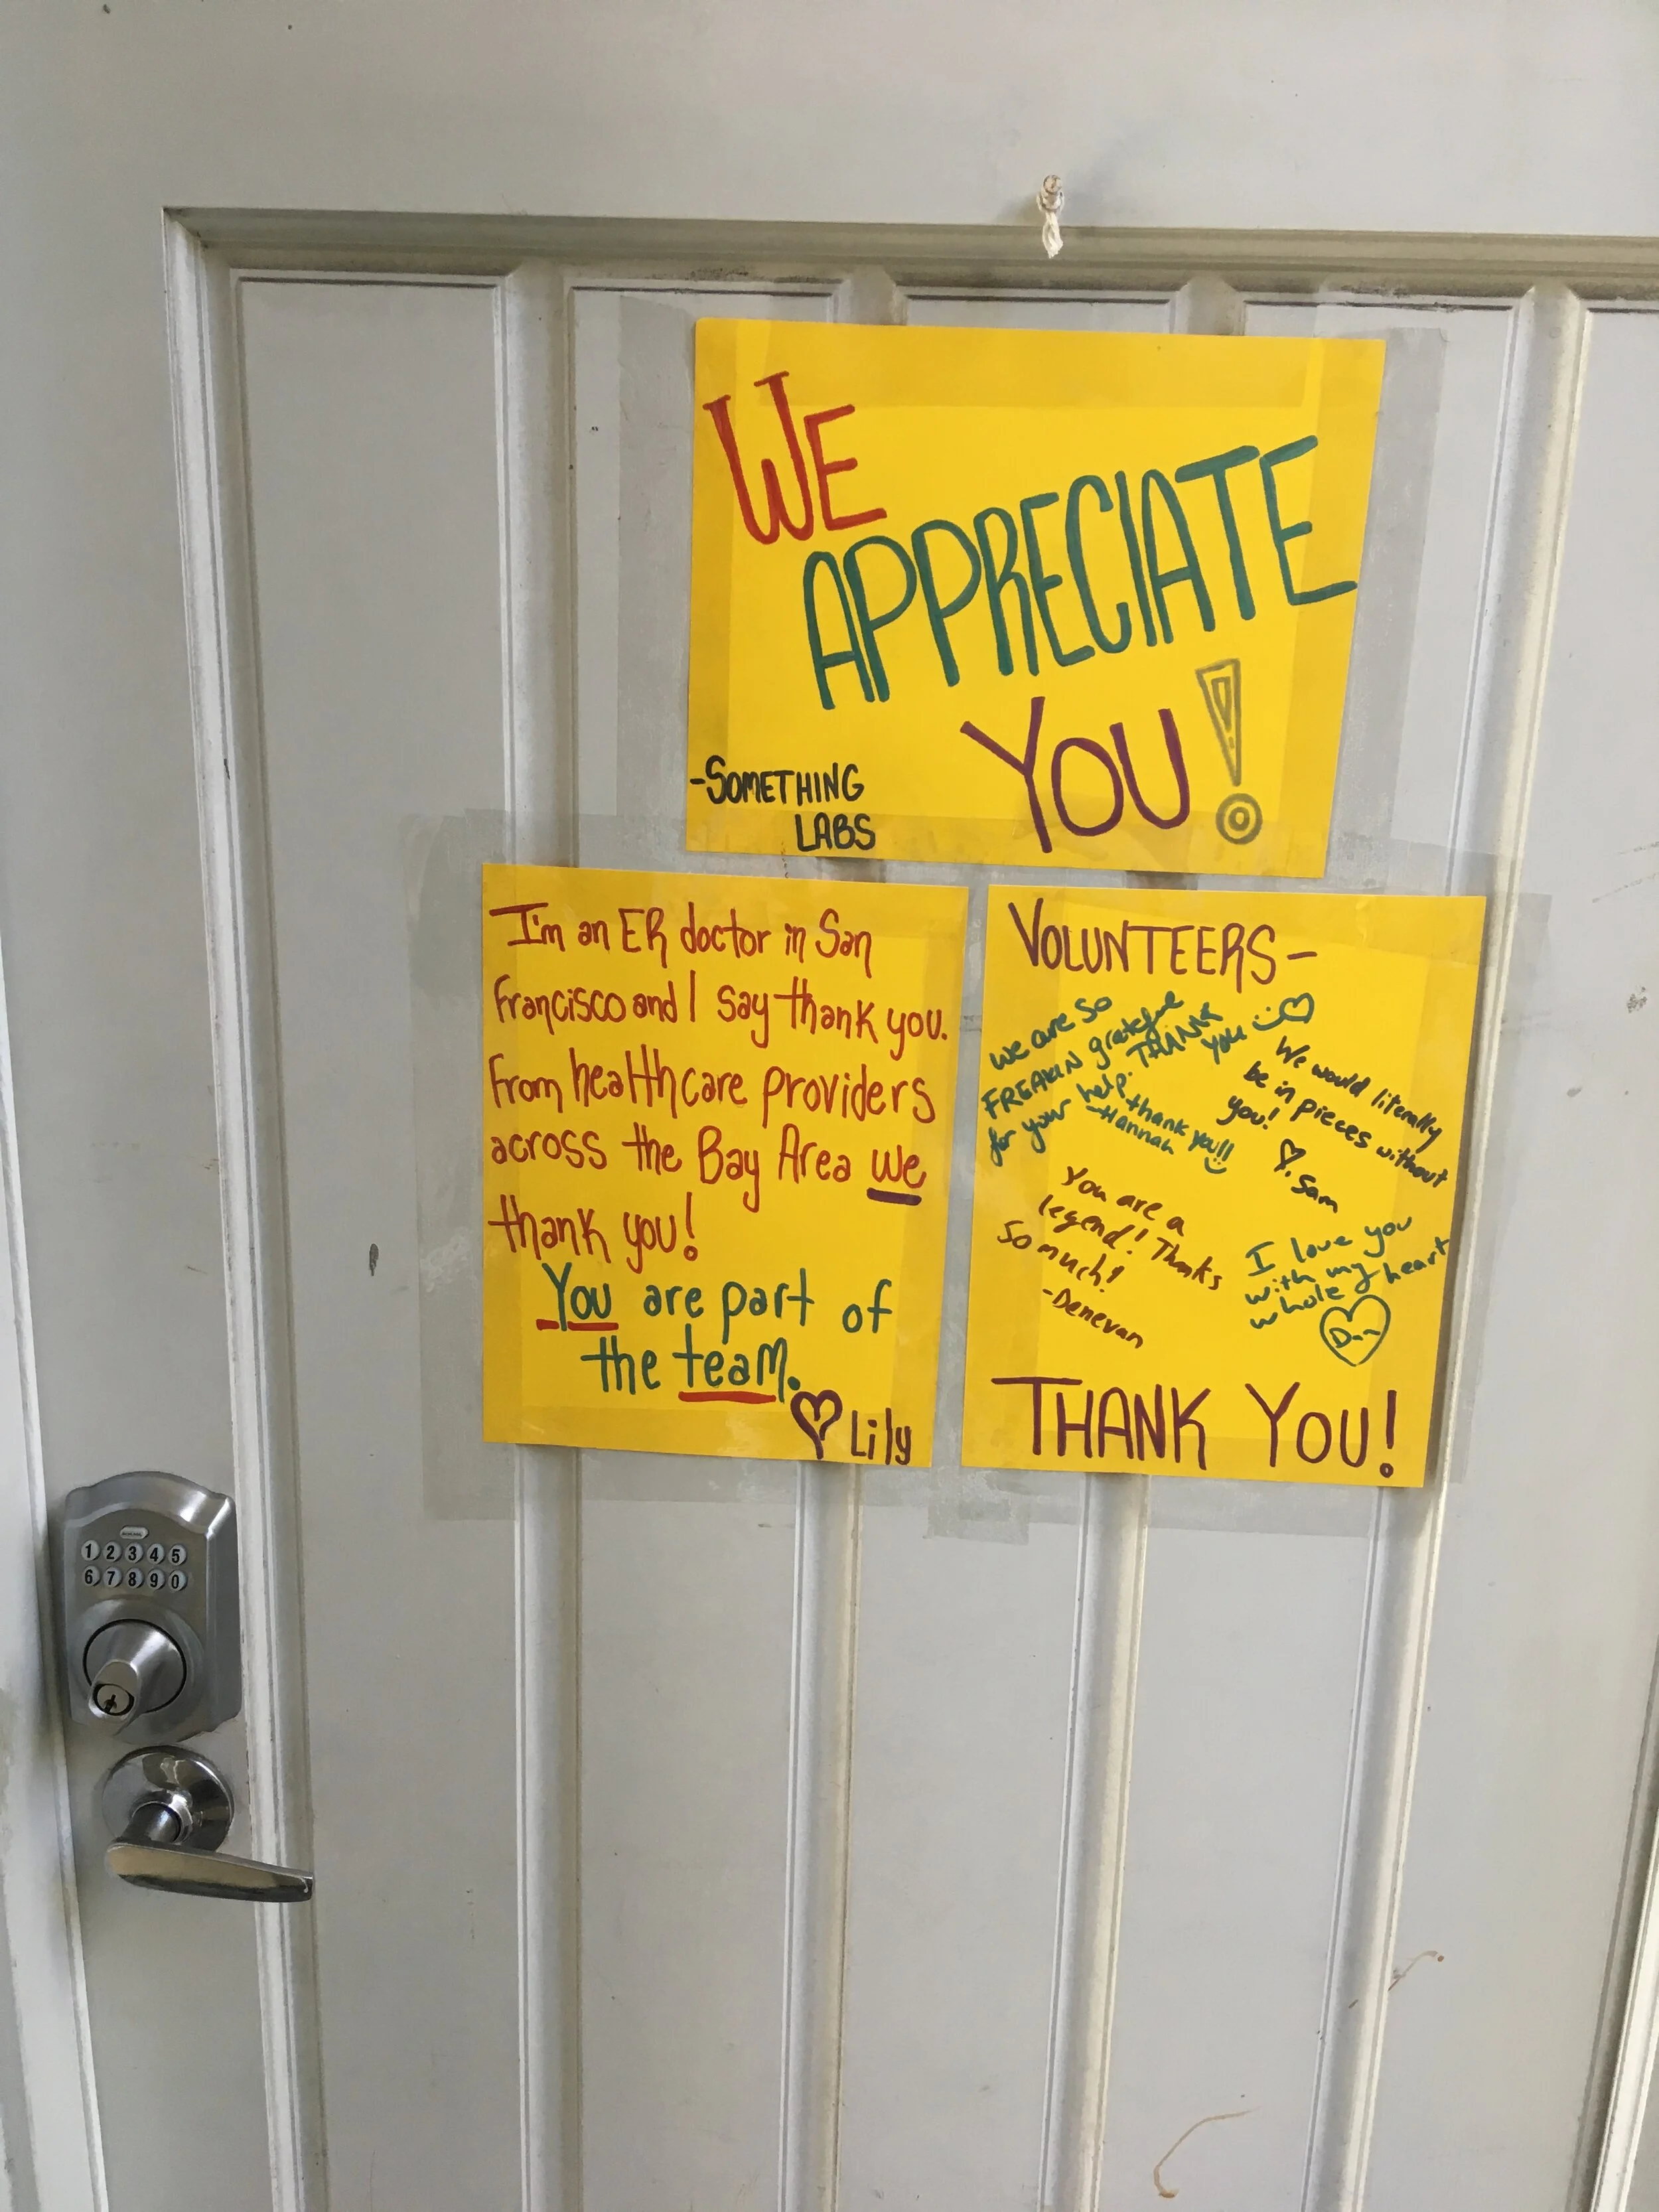 WE
APPRECIATE
YOU!
-SOMETHING
LABS
I'm an ER doctor in San
Francisco and I say thank you.
From healthcare providers
across the Bay Area we
thank you!
You are part of
the team.
Lily
VOLUNTEERS-
we are so
FREAKIN grateful
for your help. THANK
you
thank you!!
-Hannah
We would literally
be in pieces without
you!
Sam
You are a
legend! Thanks
So much!
-Denevan
I love you
with my
whole heart
THANK YOU!
1 2 3 4 5
6 7 8 9 0